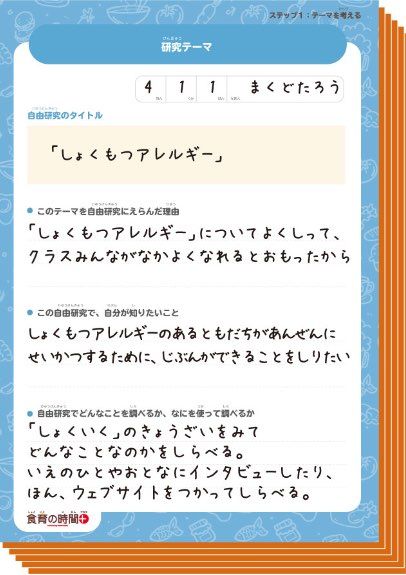 ステップ1：テーマを考える
研究テーマ
4 1 1 まくどたろう
自由研究のタイトル
「しょくもつアレルギー」
このテーマを自由研究にえらんだ理由
「しょくもつアレルギー」についてよくしって、
クラスみんながなかよくなれるとおもったから
この自由研究で、自分が知りたいこと
しょくもつアレルギーのあるともだちがあんぜんに
せいかつするために、じぶんができることをしりたい
自由研究でどんなことを調べるか、なにを使って調べるか
「しょくいく」のきょうざいをみて
どんなことなのかをしらべる。
いえのひとやおとなにインタビューしたり、
ほん、ウェブサイトをつかってしらべる。
食育の時間+